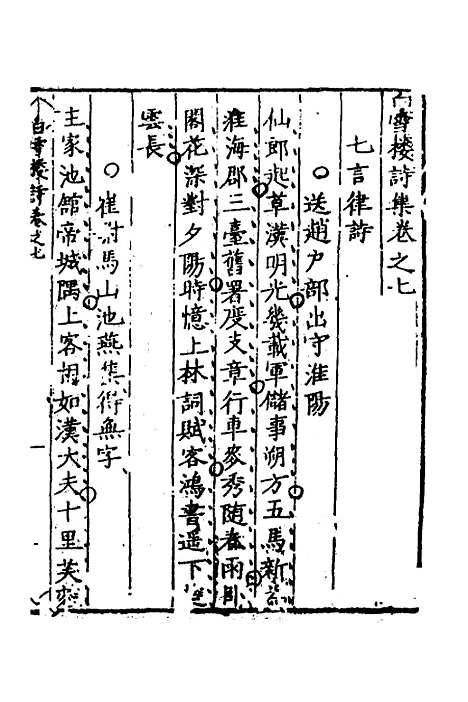 白雪樓詩集卷之七
七言律詩
送趙户部出守淮陽
仙郎起草漢明光幾載軍儲事朔方五馬新
淮海郡三臺舊署度支章行車麥秀随春雨
閣花深對夕陽時憶上林詞賦客鴻書遥下
雲長
崔駙馬山池燕集得無字
主家池舘帝城隅上客相如漢大夫十里芙
白雪樓詩卷之七
一